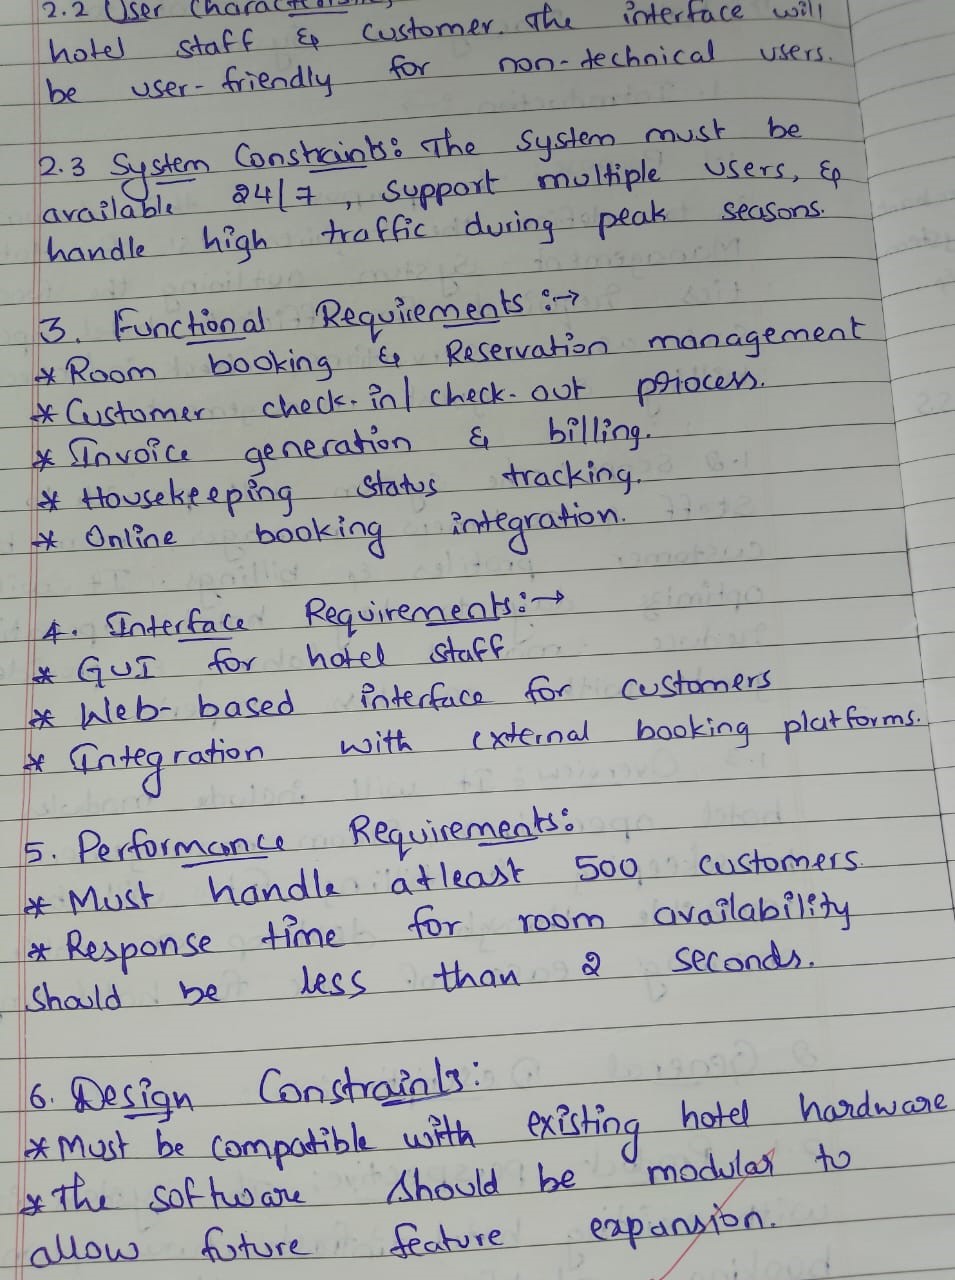 2.2 User Characteristics
hotel staff & customer. The interface will
be user-friendly for non-technical users.
2.3 System Constraints: The system must be
available 24/7, support multiple users, &
handle high traffic during peak seasons.
3. Functional Requirements :→
* Room booking & Reservation management
* Customer check-in/check-out process.
* Invoice generation & billing.
* Housekeeping status tracking.
* Online booking integration.
4. Interface Requirements:→
* GUI for hotel staff
* Web-based interface for customers
* Integration with external booking platforms.
5. Performance Requirements:
* Must handle atleast 500 customers
* Response time for room availability
should be less than 2 seconds.
6. Design Constraints:
* Must be compatible with existing hotel hardware
* The software should be modular to
allow future feature expansion.